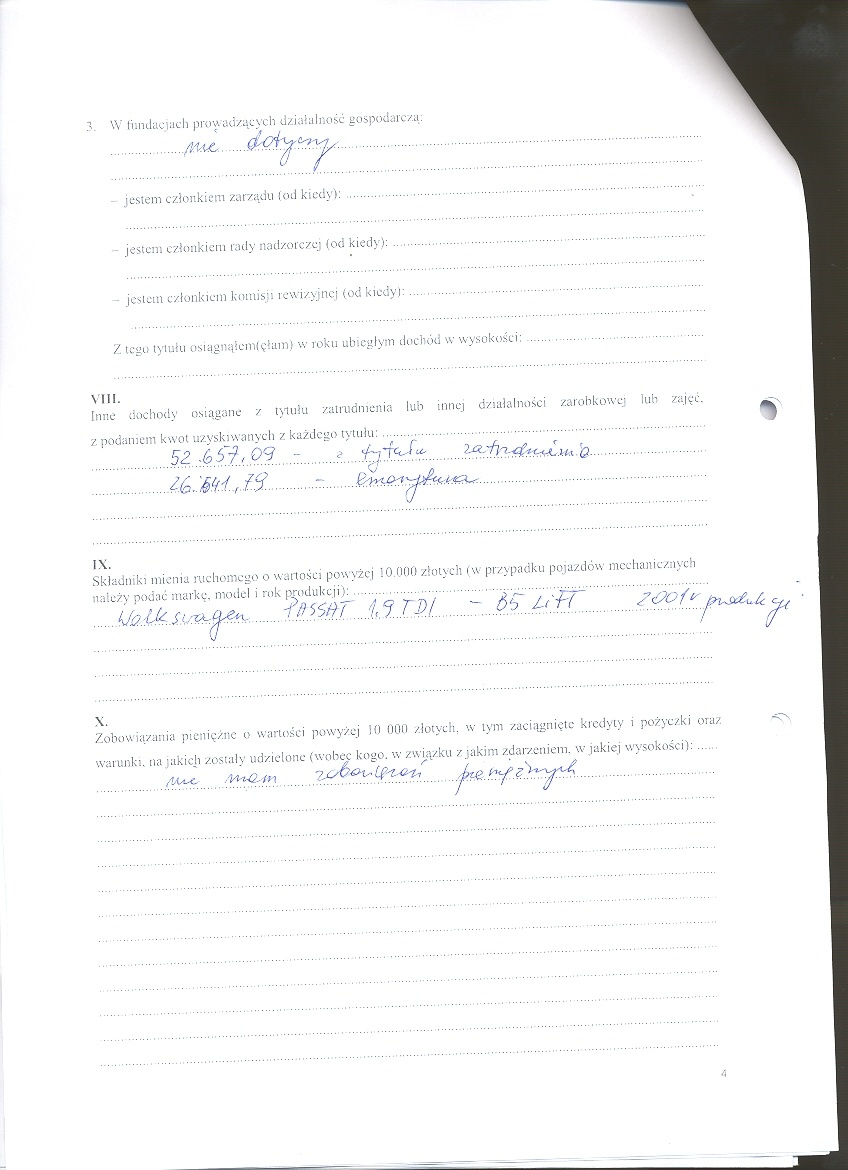 3. W fundacjach prowadzących działalność gospodarczą:
nie dotyczy
– jestem członkiem zarządu (od kiedy):
– jestem członkiem rady nadzorczej (od kiedy):
– jestem członkiem komisji rewizyjnej (od kiedy):
Z tego tytułu osiągnąłem(ęłam) w roku ubiegłym dochód w wysokości:
VIII.
Inne dochody osiągane z tytułu zatrudnienia lub innej działalności zarobkowej lub zajęć,
z podaniem kwot uzyskiwanych z każdego tytułu:
52.657,09 – z tytułu zatrudnienia
– emerytura
IX.
Składniki mienia ruchomego o wartości powyżej 10.000 złotych (w przypadku pojazdów mechanicznych
należy podać markę, model i rok produkcji):
Wolkswagen PASSAT 1,9 TDI – B5 LIFT 2001r produkcji
X.
Zobowiązania pieniężne o wartości powyżej 10 000 złotych, w tym zaciągnięte kredyty i pożyczki oraz
warunki, na jakich zostały udzielone (wobec kogo, w związku z jakim zdarzeniem, w jakiej wysokości):
nie mam zobowiązań pieniężnych
4